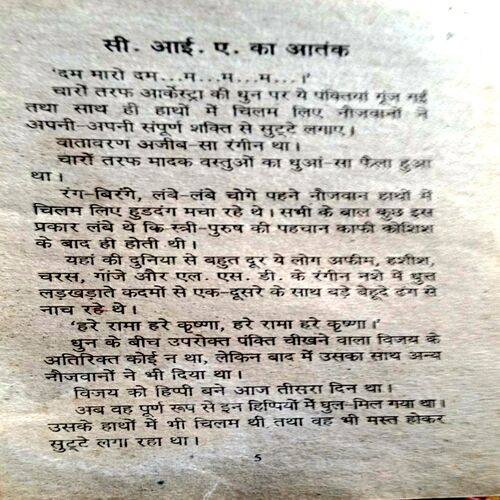 सी. आई. ए. का आतंक
'दम मारो दम...म...म...म...।'
चारों तरफ आर्केस्ट्रा की धुन पर ये पंक्तियां गूंज गई
तथा साथ ही हाथों में चिलम लिए नौजवानों ने
अपनी-अपनी संपूर्ण शक्ति से सुट्टे लगाए।
वातावरण अजीब-सा रंगीन था।
चारों तरफ मादक वस्तुओं का धुआं-सा फैला हुआ
था।
रंग-बिरंगे, लंबे-लंबे चोगे पहने नौजवान हाथों में
चिलम लिए हुडदंग मचा रहे थे। सभी के बाल कुछ इस
प्रकार लंबे थे कि स्त्री-पुरुष की पहचान काफी कोशिश
के बाद ही होती थी।
यहां की दुनिया से बहुत दूर ये लोग अफीम, हशीश,
चरस, गांजे और एल. एस. डी. के रंगीन नशे में धुत्त
लड़खड़ाते कदमों से एक-दूसरे के साथ बड़े बेहूदे ढंग से
नाच रहे थे।
'हरे रामा हरे कृष्णा, हरे रामा हरे कृष्णा।'
धुन के बीच उपरोक्त पंक्ति चीखने वाला विजय के
अतिरिक्त कोई न था, लेकिन बाद में उसका साथ अन्य
नौजवानों ने भी दिया था।
विजय को हिप्पी बने आज तीसरा दिन था।
अब वह पूर्ण रूप से इन हिप्पियों में घुल-मिल गया था।
उसके हाथों में भी चिलम थी तथा वह भी मस्त होकर
सुट्टे लगा रहा था।
5